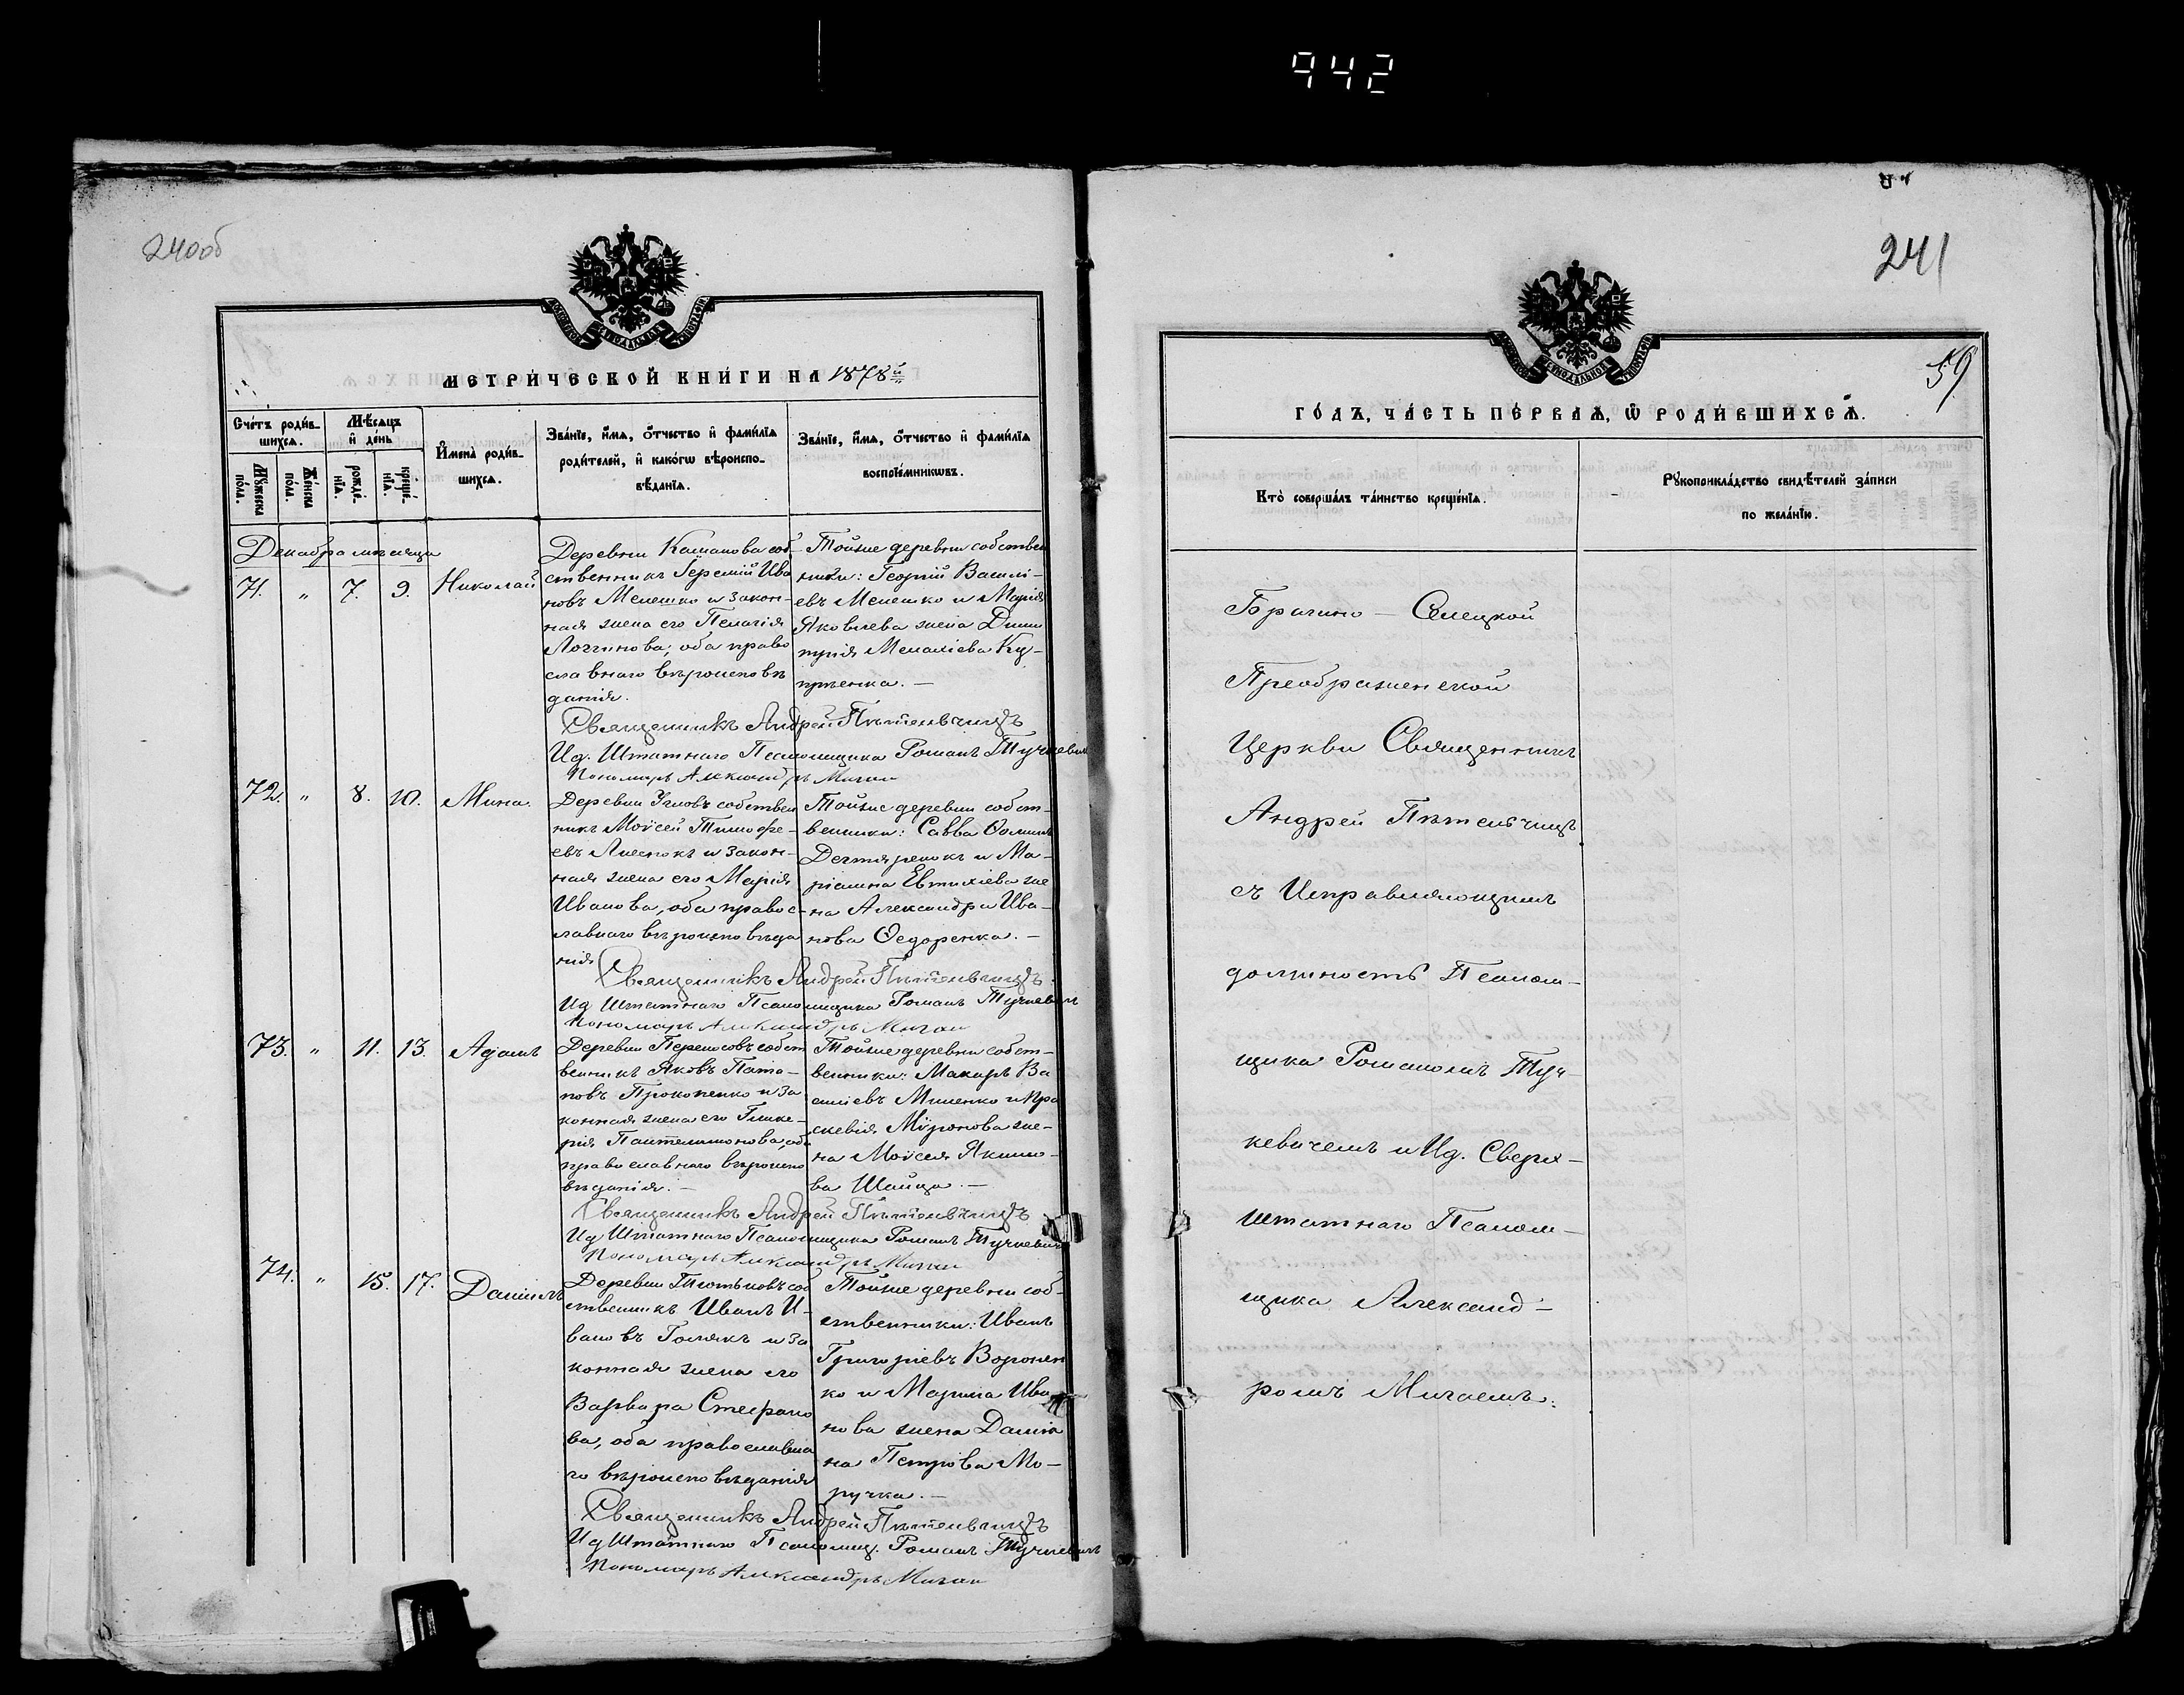 942
240об
МЕТРИЧЕСКОЙ КНИГИ НА 1878й
Счетъ родив-
шихся.
Мужеска пола.
Женска пола.
Мѣсяцъ и день
рожде-
нія.
креще-
нія.
Имена родив-
шихся.
Званіе, имя, отчество и фамилія
родителей, и какого вѣроиспо-
вѣданія.
Званіе, имя, отчество и фамилія
воспріемниковъ.
Декабря мѣсяца
71. „ 7. 9. Николай
Деревни собственникъ Іеремій Ива
новъ Мелешко и закон-
ная жена его Пелагія
Логгинова, оба право
славнаго вѣроисповѣ
данія.
Тойже деревни собствен
ники: Георгій Василі-
евъ Мелешко и Марія
Яковлева жена Дими
трія
Священникъ Андрей Пѣтельчицъ
Ид. Штатнаго Псаломщика Романъ Тучкевичъ
Пономарь Александръ Мигай
72. „ 8. 10. Мина.
Деревни собствен
никъ Моѵсей Тимофе-
евъ и закон-
ная жена его Марія
Иванова, оба правос-
лавнаго вѣроисповѣда
нія
Тойже деревни собст-
венники: Савва Ѳоминъ
Дегтяренокъ и Ма-
ріанна Евтихіева же
на Александра Ива-
нова Ѳедоренка. —
Священникъ Андрей Пѣтельчицъ
Ид Штатнаго Псаломщика Романъ Тучкевичъ
Пономарь Александръ Мигай
73. „ 11. 13. Адамъ
Деревни Переносовъ собст
венникъ Яковъ Пата-
повъ Прокопенко и за
конная жена его Глике-
рія Пантелимонова, оба
православнаго вѣроиспо
вѣданія. —
Тойже деревни собст-
венники: Макаръ Ва
силіевъ Миненко и Пра
скевія Міронова же-
на Моѵсея Якимо-
ва Шайца. —
Священникъ Андрей Пѣтельчицъ
Ид Штатнаго Псаломщика Романъ Тучкевичъ
Пономарь Александръ Мигай
74. „ 15. 17. Даніилъ
Деревни Тютьковъ соб
ственникъ Иванъ И-
вановъ и за
конная жена его
Варвара Стефано
ва, оба православна
го вѣроисповѣданія
Тойже деревни соб-
ственники: Иванъ
Григоріевъ Воронен
ко и Марина Ива
нова жена Даміа
на Петрова Мо-
ручка. —
Священникъ Андрей Пѣтельчицъ
Ид Штатнаго Псаломщ. Романъ Тучкевичъ
Пономарь Александръ Мигай
241
59
ГОДЪ, ЧАСТЬ ПЕРВАЯ, Ѡ РОДИВШИХСЯ.
Кто совершалъ таинство крещенія.
Рукоприкладство свидѣтелей записи
по желанію.
Брагино — Селецкой
Преображенской
Церкви Священникъ
Андрей Пѣтельчицъ
съ Исправляющимъ
должность Псалом-
щика Романомъ Туч-
кевичемъ и Ид. Сверх-
штатнаго Псалом-
щика Александ-
ромъ Мигаемъ.